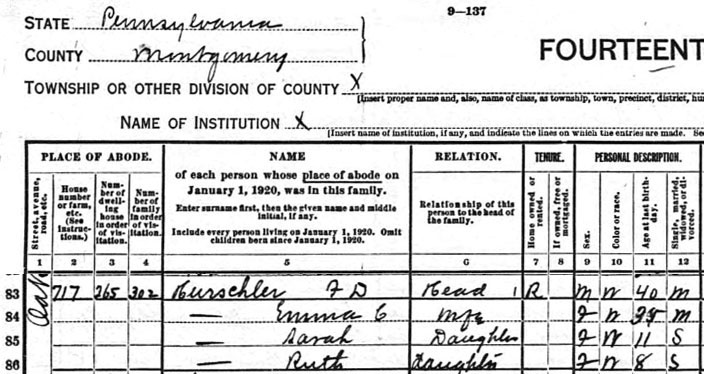 9—137
STATE Pennsylvania
COUNTY Montgomery
FOURTEENT
TOWNSHIP OR OTHER DIVISION OF COUNTY X
[Insert proper name and, also, name of class, as township, town, precinct, district, hu
NAME OF INSTITUTION X
[Insert name of institution, if any, and indicate the lines on which the entries are made. Se
PLACE OF ABODE. NAME RELATION. TENURE. PERSONAL DESCRIPTION.
Street, avenue, road, etc.
House number or farm, etc. (See instructions.)
Number of dwelling house in order of visitation.
Number of family in order of visitation.
of each person whose place of abode on
January 1, 1920, was in this family.
Enter surname first, then the given name and middle
initial, if any.
Include every person living on January 1, 1920. Omit
children born since January 1, 1920.
Relationship of this
person to the head of
the family.
Home owned or rented.
If owned, free or mortgaged.
Sex.
Color or race.
Age at last birthday.
Single, married, widowed, or divorced.
1 2 3 4 5 6 7 8 9 10 11 12
Oak
83 717 265 302 Hurschler F D Head 1 R M W 40 M
84 — Emma C Wife F W M
85 — Sarah Daughter F W 11 S
86 — Ruth Daughter F W 8 S